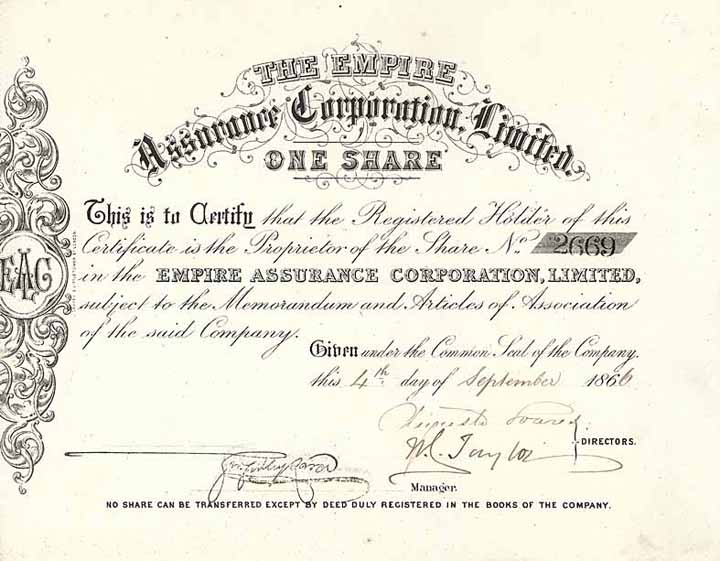 THE EMPIRE
Assurance Corporation, Limited.
ONE SHARE
This is to Certify that the Registered Holder of this
Certificate is the Proprietor of the Share No. 2669
in the EMPIRE ASSURANCE CORPORATION, LIMITED,
subject to the Memorandum and Articles of Association
of the said Company.
EAC
Given under the Common Seal of the Company.
this 4th day of September 1866
Augusto Soares
W. C. Taylor
DIRECTORS.
Manager.
NO SHARE CAN BE TRANSFERRED EXCEPT BY DEED DULY REGISTERED IN THE BOOKS OF THE COMPANY.